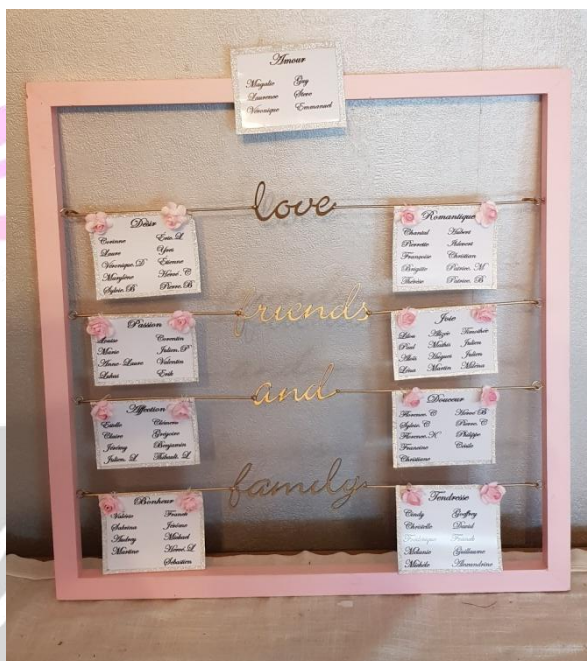 Amour
Magalie Guy
Laurence Steve
Véronique Emmanuel
love
Désir
Corinne Eric.L
Laure Yves
Véronique.D Etienne
Marylène Hervé.C
Sylvie.B Pierre.B
Romantique
Chantal Hubert
Pierrette
Françoise Christian
Brigitte Patrice.M
Thérèse Patrice.B
friends
Passion
Corentin
Marie Julien.P
Anne-Laure Valentin
Lukas
Joie
Lilou Alizée Timothée
Paul Mathis Julien
Hugues Julien
Léna Martin
and
Affection
Estelle Clémence
Claire Grégoire
Jérémy Benjamin
Julien.L Thibault.L
Douceur
Florence.C Hervé B
Sylvie.C Pierre.C
Florence.N Philippe
Francine Cécile
Christiane
family
Bonheur
Valérie Franck
Sabrina Jérôme
Audrey Mickael
Martine Hervé.L
Sébastien
Tendresse
Cindy Geoffrey
Christelle David
Frédérique Franck
Mélanie Guillaume
Michèle Alexandrine